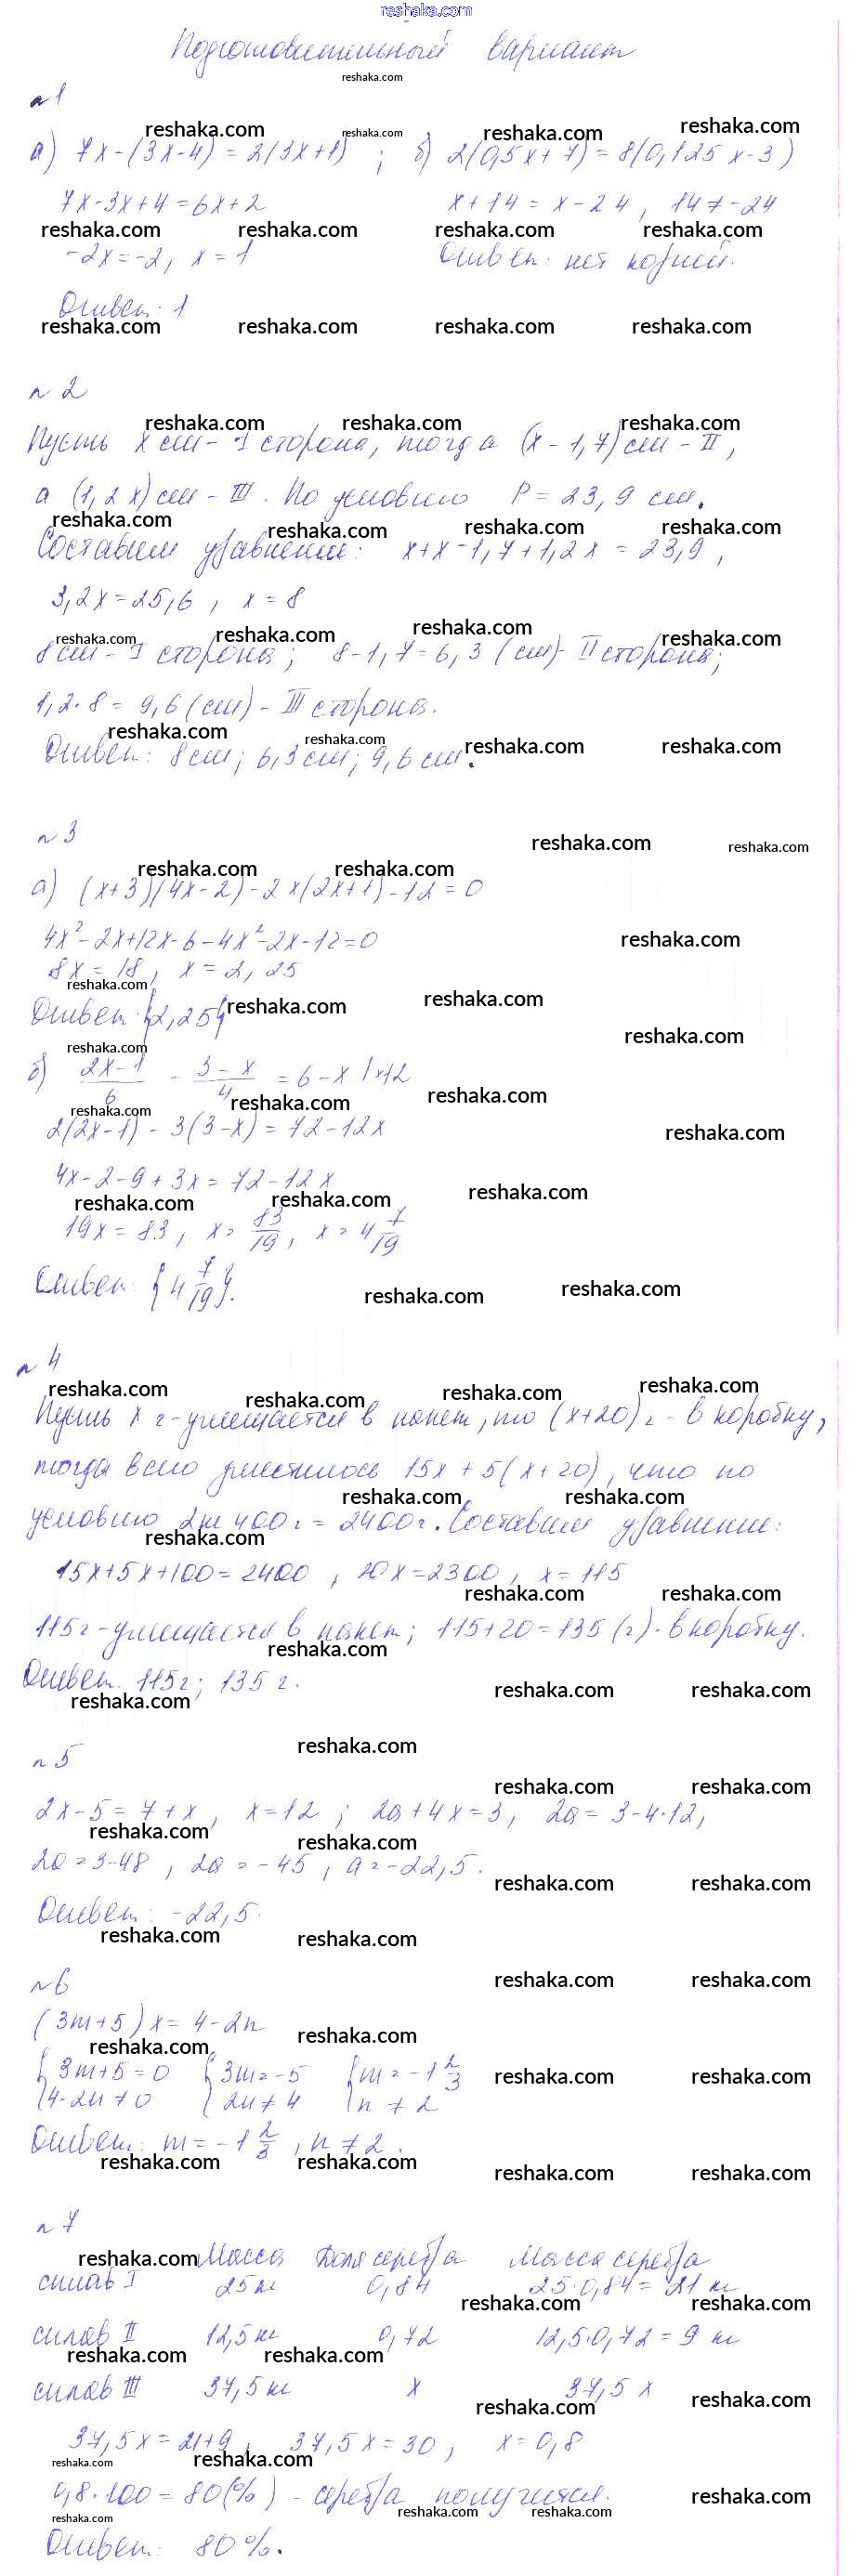 reshaka.com
Подготовительный вариант
n1
а) 7x-(3x-4)=2(3x+1) ; б) 2(0,5x+7)=8(0,125x-3)
7x-3x+4=6x+2 x+14=x-24, 14≠-24
-2x=-2, x=1 Ответ: нет корней.
Ответ: 1
n2
Пусть x см - I сторона, тогда (x-1,7) см - II,
а (1,2x) см - III. По условию P=23,9 см.
Составим уравнение: x+x-1,7+1,2x=23,9,
3,2x=25,6, x=8
8 см - I сторона; 8-1,7=6,3 (см) - II сторона;
1,2·8=9,6 (см) - III сторона.
Ответ: 8 см; 6,3 см; 9,6 см.
n3
а) (x+3)(4x-2)-2x(2x+1)-12=0
4x²-2x+12x-6-4x²-2x-12=0
8x=18, x=2,25
Ответ: {2,25}
б) (2x-1)/6 - (3-x)/4 = 6-x |×12
2(2x-1)-3(3-x)=72-12x
4x-2-9+3x=72-12x
19x=83, x=83/19, x=4 7/19
Ответ: {4 7/19}.
n4
Пусть x г - умещается в пакет, то (x+20) г - в коробку,
тогда всего уместилось 15x+5(x+20), что по
условию 2 кг 400 г = 2400 г. Составим уравнение:
15x+5x+100=2400, 20x=2300, x=115
115 г - умещается в пакет; 115+20=135 (г) - в коробку.
Ответ: 115 г; 135 г.
n5
2x-5=7+x, x=12; 2a+4x=3, 2a=3-4·12,
2a=3-48, 2a=-45, a=-22,5.
Ответ: -22,5.
n6
(3m+5)x=4-2n
{3m+5=0 {3m=-5 {m=-1 2/3
{4-2n≠0 {2n≠4 {n≠2
Ответ: m=-1 2/3, n≠2.
n7
Масса Доля серебра Масса серебра
сплав I 25 кг 0,84 25·0,84=21 кг
сплав II 12,5 кг 0,72 12,5·0,72=9 кг
сплав III 37,5 кг x 37,5x
37,5x=21+9, 37,5x=30, x=0,8
0,8·100=80(%) - серебра получится.
Ответ: 80%.